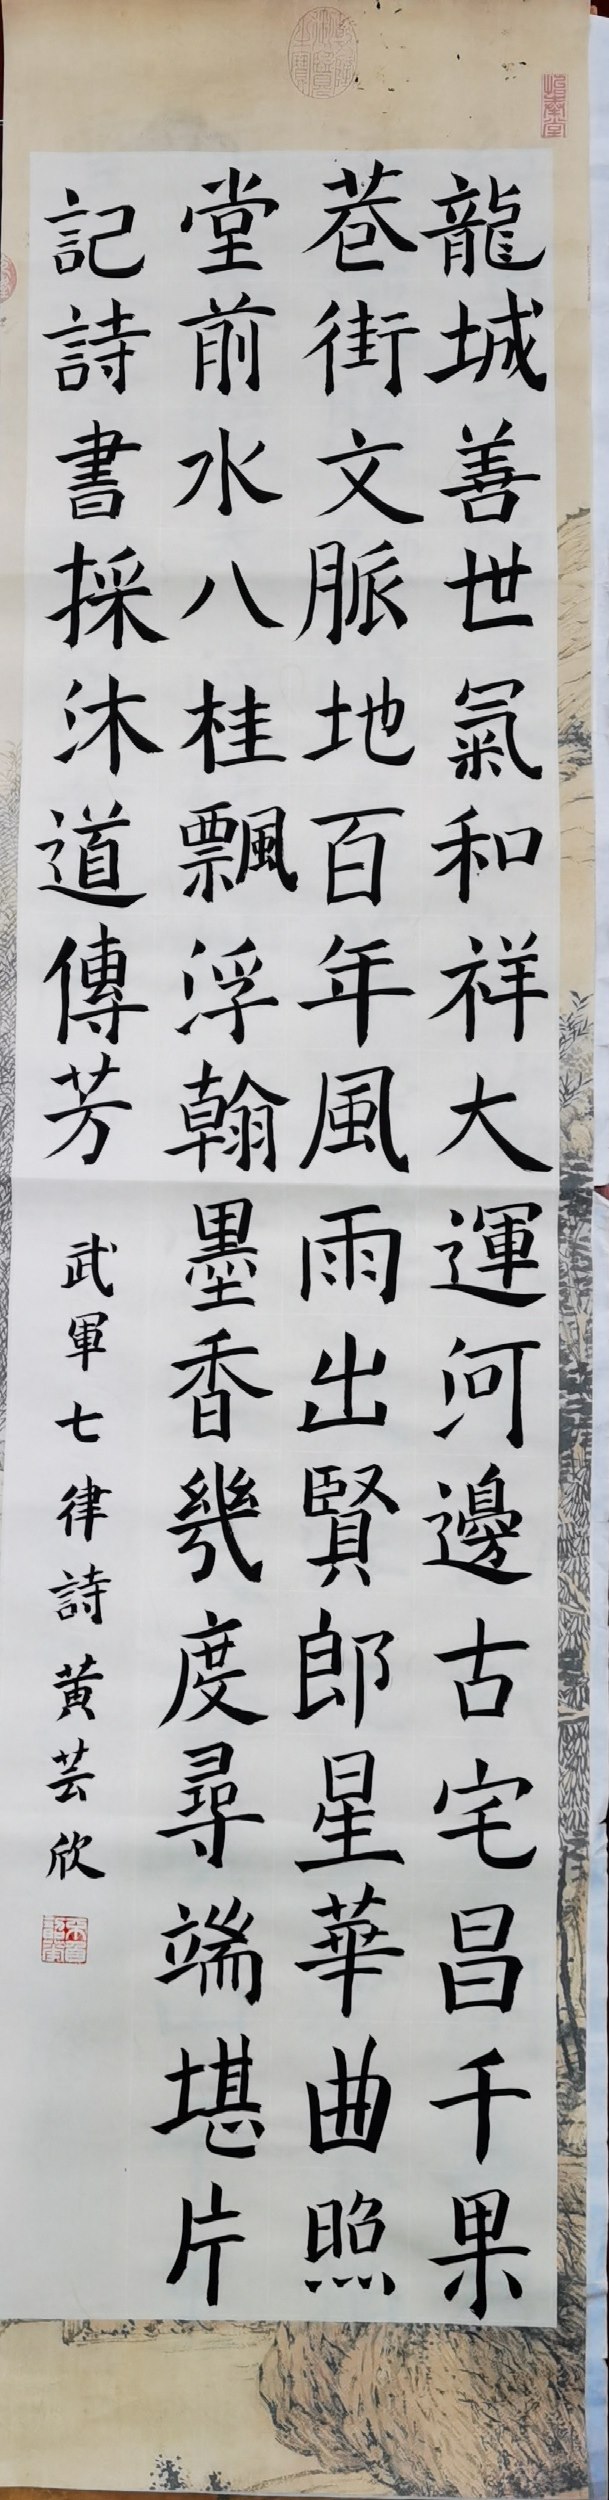 龍城善世氣和祥大運河邊古宅昌千果
巷街文脈地百年風雨出賢郎星華曲照
堂前水八桂飄浮翰墨香幾度尋端堪片
記詩書採沐道傳芳
武軍七律詩黃芸欣